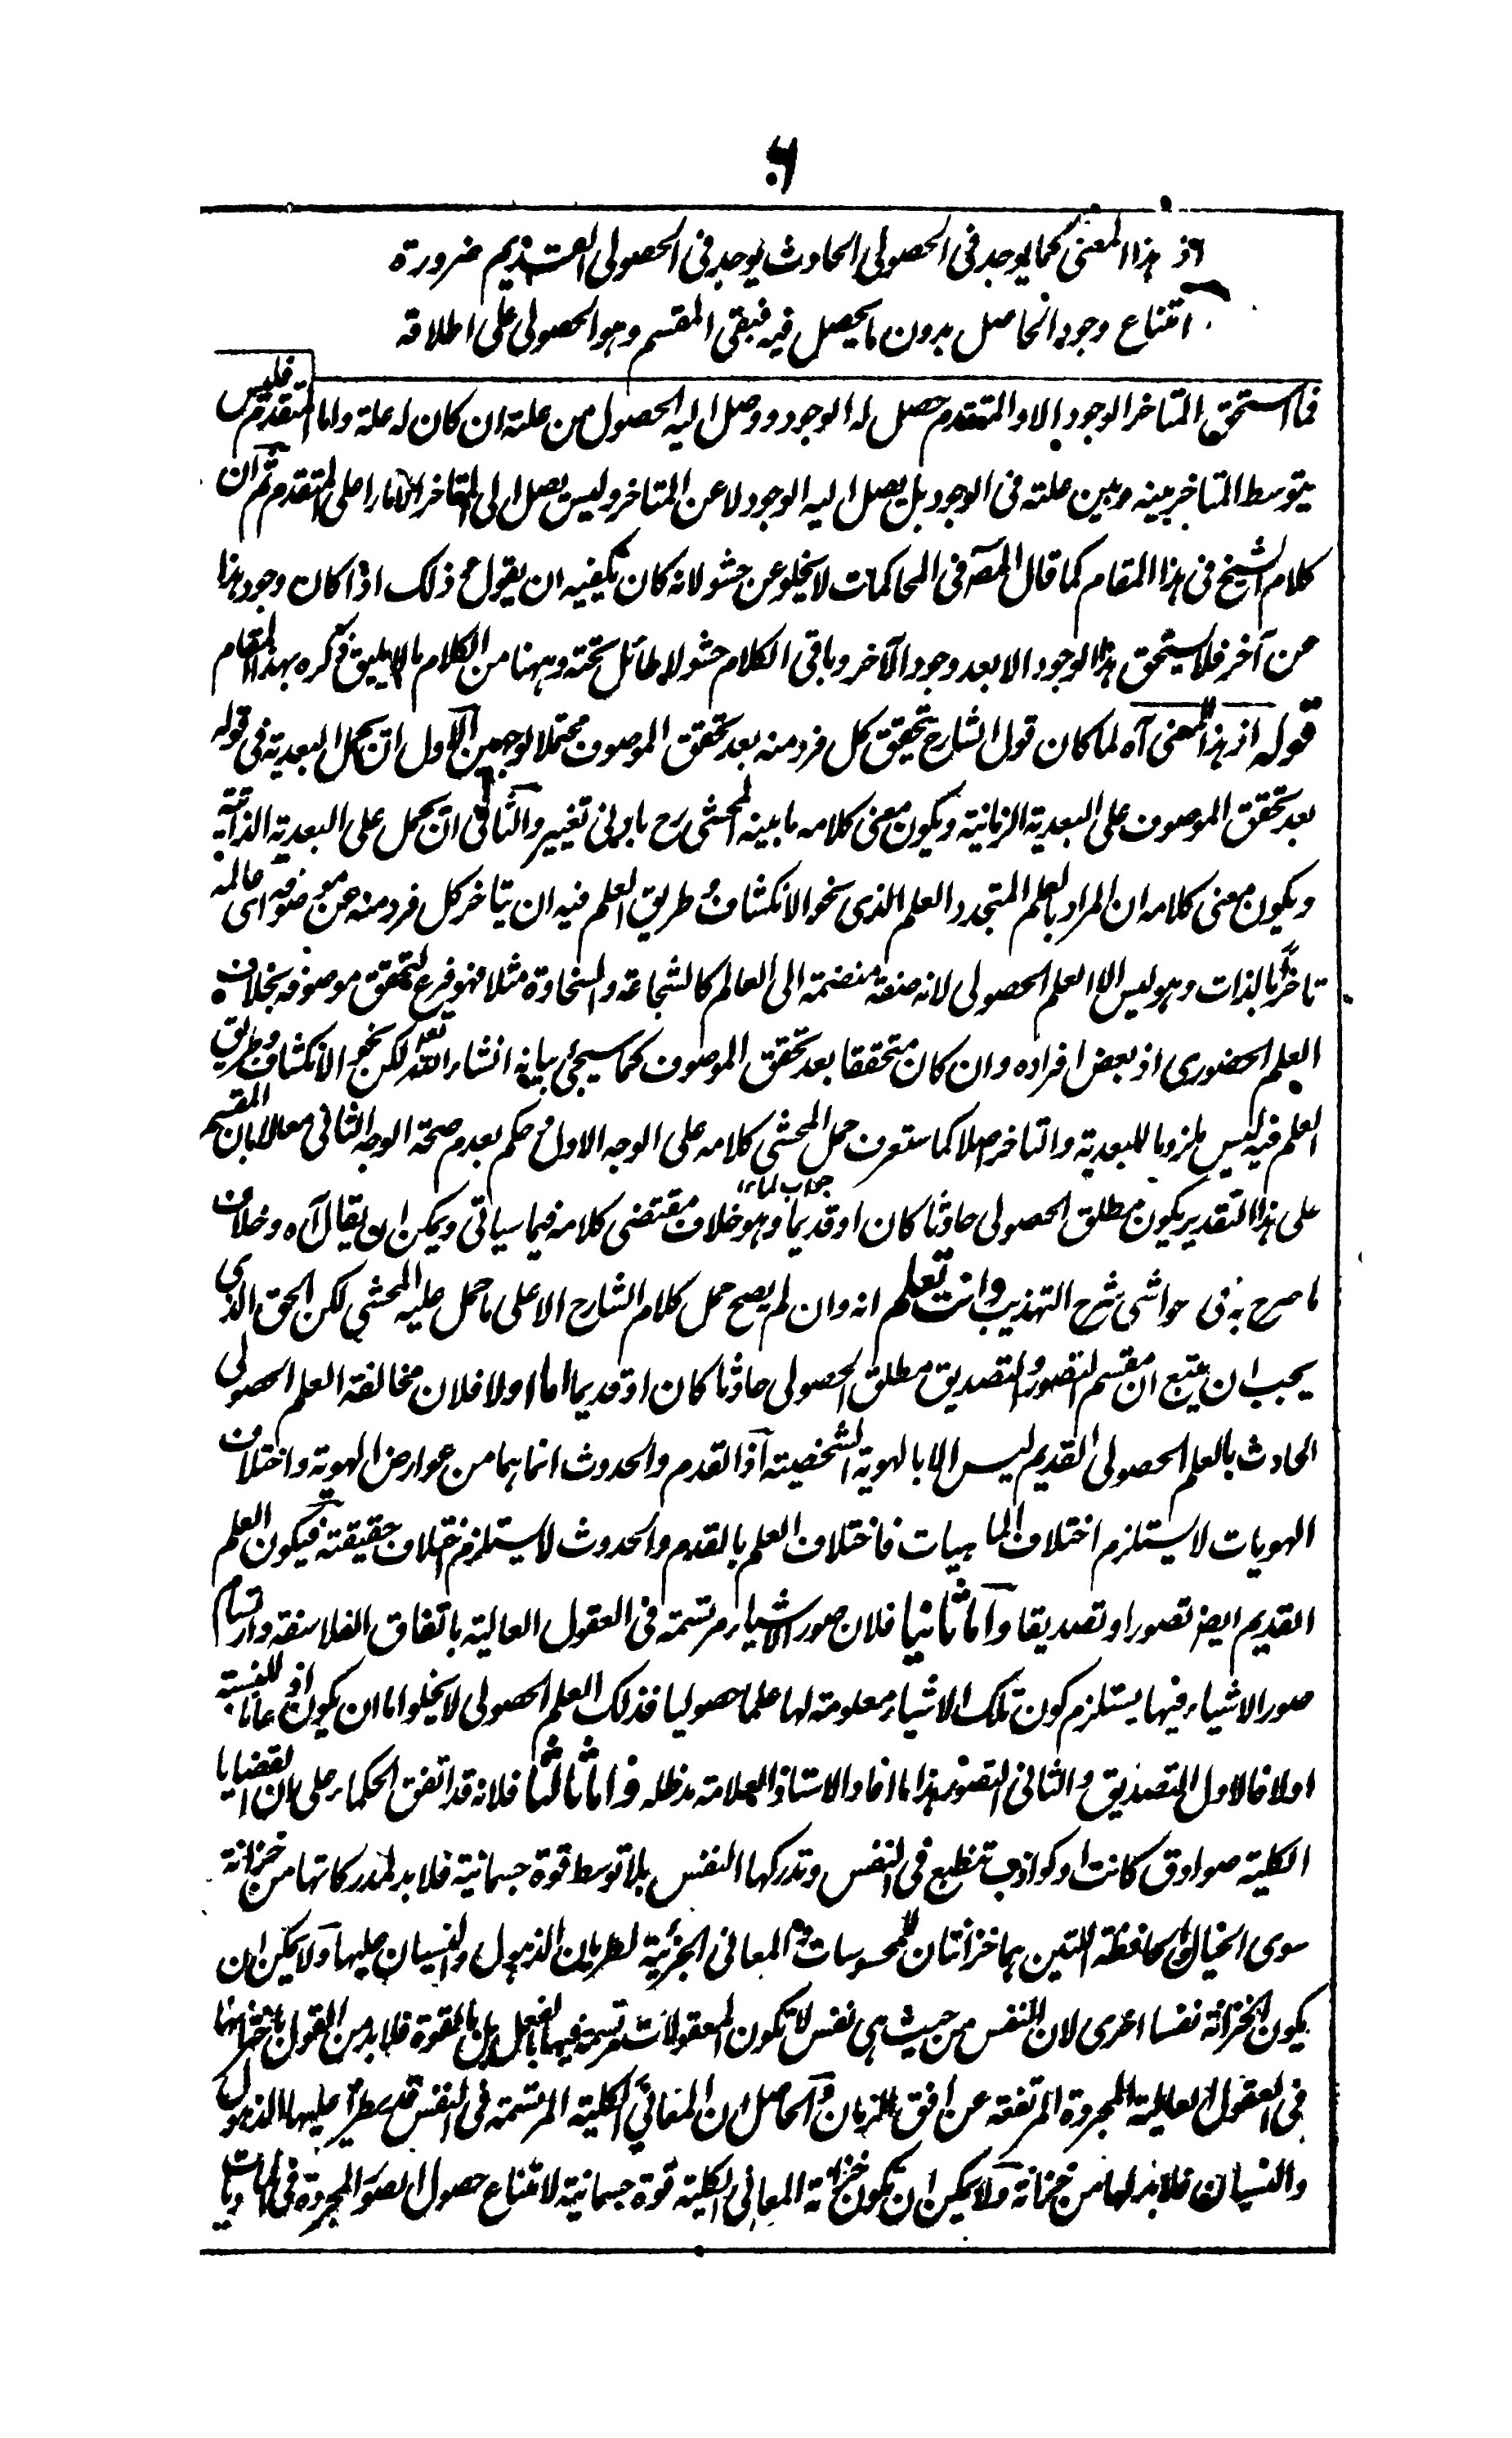 ٦
اذ هذا المعنى كما يوجد فى الحصولى الحادث يوجد فى الحصولى القديم ضرورة
امتناع وجود الحاصل بدون ما يحصل فيه فبقى المقسم وهو الحصولى على اطلاقه
فما استحق المتاخر الوجود الا والمتقدم حصل له الوجود ووصل اليه الحصول من علته ان كان له علة واما المتقدم فليس
يتوسط المتاخر بينه وبين علته فى الوجود بل يصل اليه الوجود لا عن المتاخر وليس يصل الى المتاخر الا مارا على المتقدم ثم ان
كلام الشيخ فى هذا المقام كما قال المص فى المحاكمات لا يخلو عن حشو لانه كان يكفيه ان يقول مح ذلك اذا كان وجود هذا
عن آخر فلا يستحق هذا الوجود الا بعد وجود الآخر وباقى الكلام حشو لا طائل تحته وههنا من الكلام ما لا يليق ذكره بهذا المقام
قوله اذ هذا المعنى آه لما كان قول الشارح يتحقق كل فرد منه بعد تحقق الموصوف محتملا لوجهين الاول ان يحمل البعدية فى قوله
بعد تحقق الموصوف على البعدية الزمانية ويكون معنى كلامه ما بينه المحشى رح بادنى تغيير والثانى ان يحمل على البعدية الذاتية
ويكون معنى كلامه ان المراد بالعلم المتجدد العلم الذى نحو الانكشاف وطريق العلم فيه ان يتاخر كل فرد منه عن موصوفه اى عالمه
تاخرا بالذات وهو ليس الا العلم الحصولى لانه صفة منضمة الى العالم كالشجاعة والسخاوة مثلا فهو فرع لتحقق موصوفه بخلاف
العلم الحضورى اذ بعض افراده وان كان متحققا بعد تحقق الموصوف كما سيجئ بيانه انشاء الله تعه لكن نحو الانكشاف وطريق
العلم فيه ليس ملزوما للبعدية والتاخر اصلا كما ستعرف حمل المحشى كلامه على الوجه الاول مح حكم بعدم صحة الوجه الثانى معللا بان المقسم
على هذا التقدير يكون مطلق الحصولى حادثا كان او قديما وهو خلاف مقتضى كلامه فيما سياتى ويمكن ان يقال آه وخلاف
جواب لما ١٢
ما صرح به فى حواشى شرح التهذيب وانت تعلم انه وان لم يصح حمل كلام الشارح الا على ما حمل عليه المحشى لكن الحق الذى
يجب ان يتبع ان مقسم التصور والتصديق مطلق الحصولى حادثا كان او قديما اما اولا فلان مخالفة العلم الحصولى
الحادث بالعلم الحصولى القديم ليس الا بالهوية الشخصية اذ القدم والحدوث انما هما من عوارض الهوية واختلاف
الهويات لا يستلزم اختلاف الماهيات فاختلاف العلم بالقدم والحدوث لا يستلزم اختلاف حقيقته فيكون العلم
القديم ايضا تصورا وتصديقا واما ثانيا فلان صور الاشياء مرتسمة فى العقول العالية باتفاق الفلاسفة وارتسام
صور الاشياء فيها يستلزم كون تلك الاشياء معلومة لها علما حصوليا فذلك العلم الحصولى لا يخلو اما ان يكون اذعانا بالنسبة
اولا فالاول التصديق والثانى التصور هذا ما افاد الاستاذ العلامة مد ظله واما ثالثا فلانه قد اتفق الحكماء على ان القضايا
الكلية صوادق كانت او كواذب تنطبع فى النفس وتدركها النفس بلا توسط قوة جسمانية فلا بد لمدركاتها من خزانة
سوى الخيال والحافظة اللتين هما خزانتان للمحسوسات والمعانى الجزئية لطريان الذهول والنسيان عليها ولا يمكن ان
يكون الخزانة نفسا اخرى لان النفس من حيث هى نفس لا تكون المعقولات مرتسمة فيها بالفعل بل بالقوة فلا بد من القول بانخزانها
فى العقول العالية المجردة المرتفعة عن افق الزمان والحاصل ان المعانى الكلية المرتسمة فى النفس قد يطرأ عليها الذهول
والنسيان فلا بد لها من خزانة ولا يمكن ان تكون خزانة المعانى الكلية قوة جسمانية لامتناع حصول الصور المجردة فى الماديات